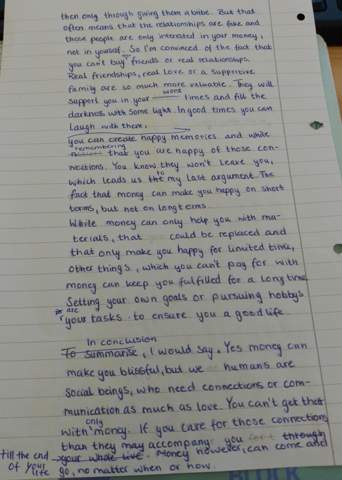 then only through giving them a bribe. But that
often means that the relationships are fake and
those people are only interested in your money,
not in yourself. So I'm convinced of the fact that
you can't buy friends or real relationships.
Real friendships, real love or a supportive
family are so much more valuable. They will
support you in your worst times and fill the
darkness with some light. In good times you can
laugh with them,
you can create happy memories and while
remembering that you are happy of those con-
nections. You know they won't leave you,
which leads us to my last argument. The
fact that money can make you happy on short
terms, but not on longterms.
While money can only help you with ma-
terials, that could be replaced and
that only make you happy for limited time,
other things, which you can't pay for with
money can keep you fulfilled for a long time.
Setting your own goals or pursuing hobby's
are your tasks to ensure you a good life.
In conclusion
To summarise, I would say, Yes money can
make you blissful, but we humans are
social beings, who need connections or com-
munication as much as love. You can't get that
with only money. If you care for those connections,
than they may accompany you through
till the end of your life your whole live. Money however, can come and
go, no matter when or how.